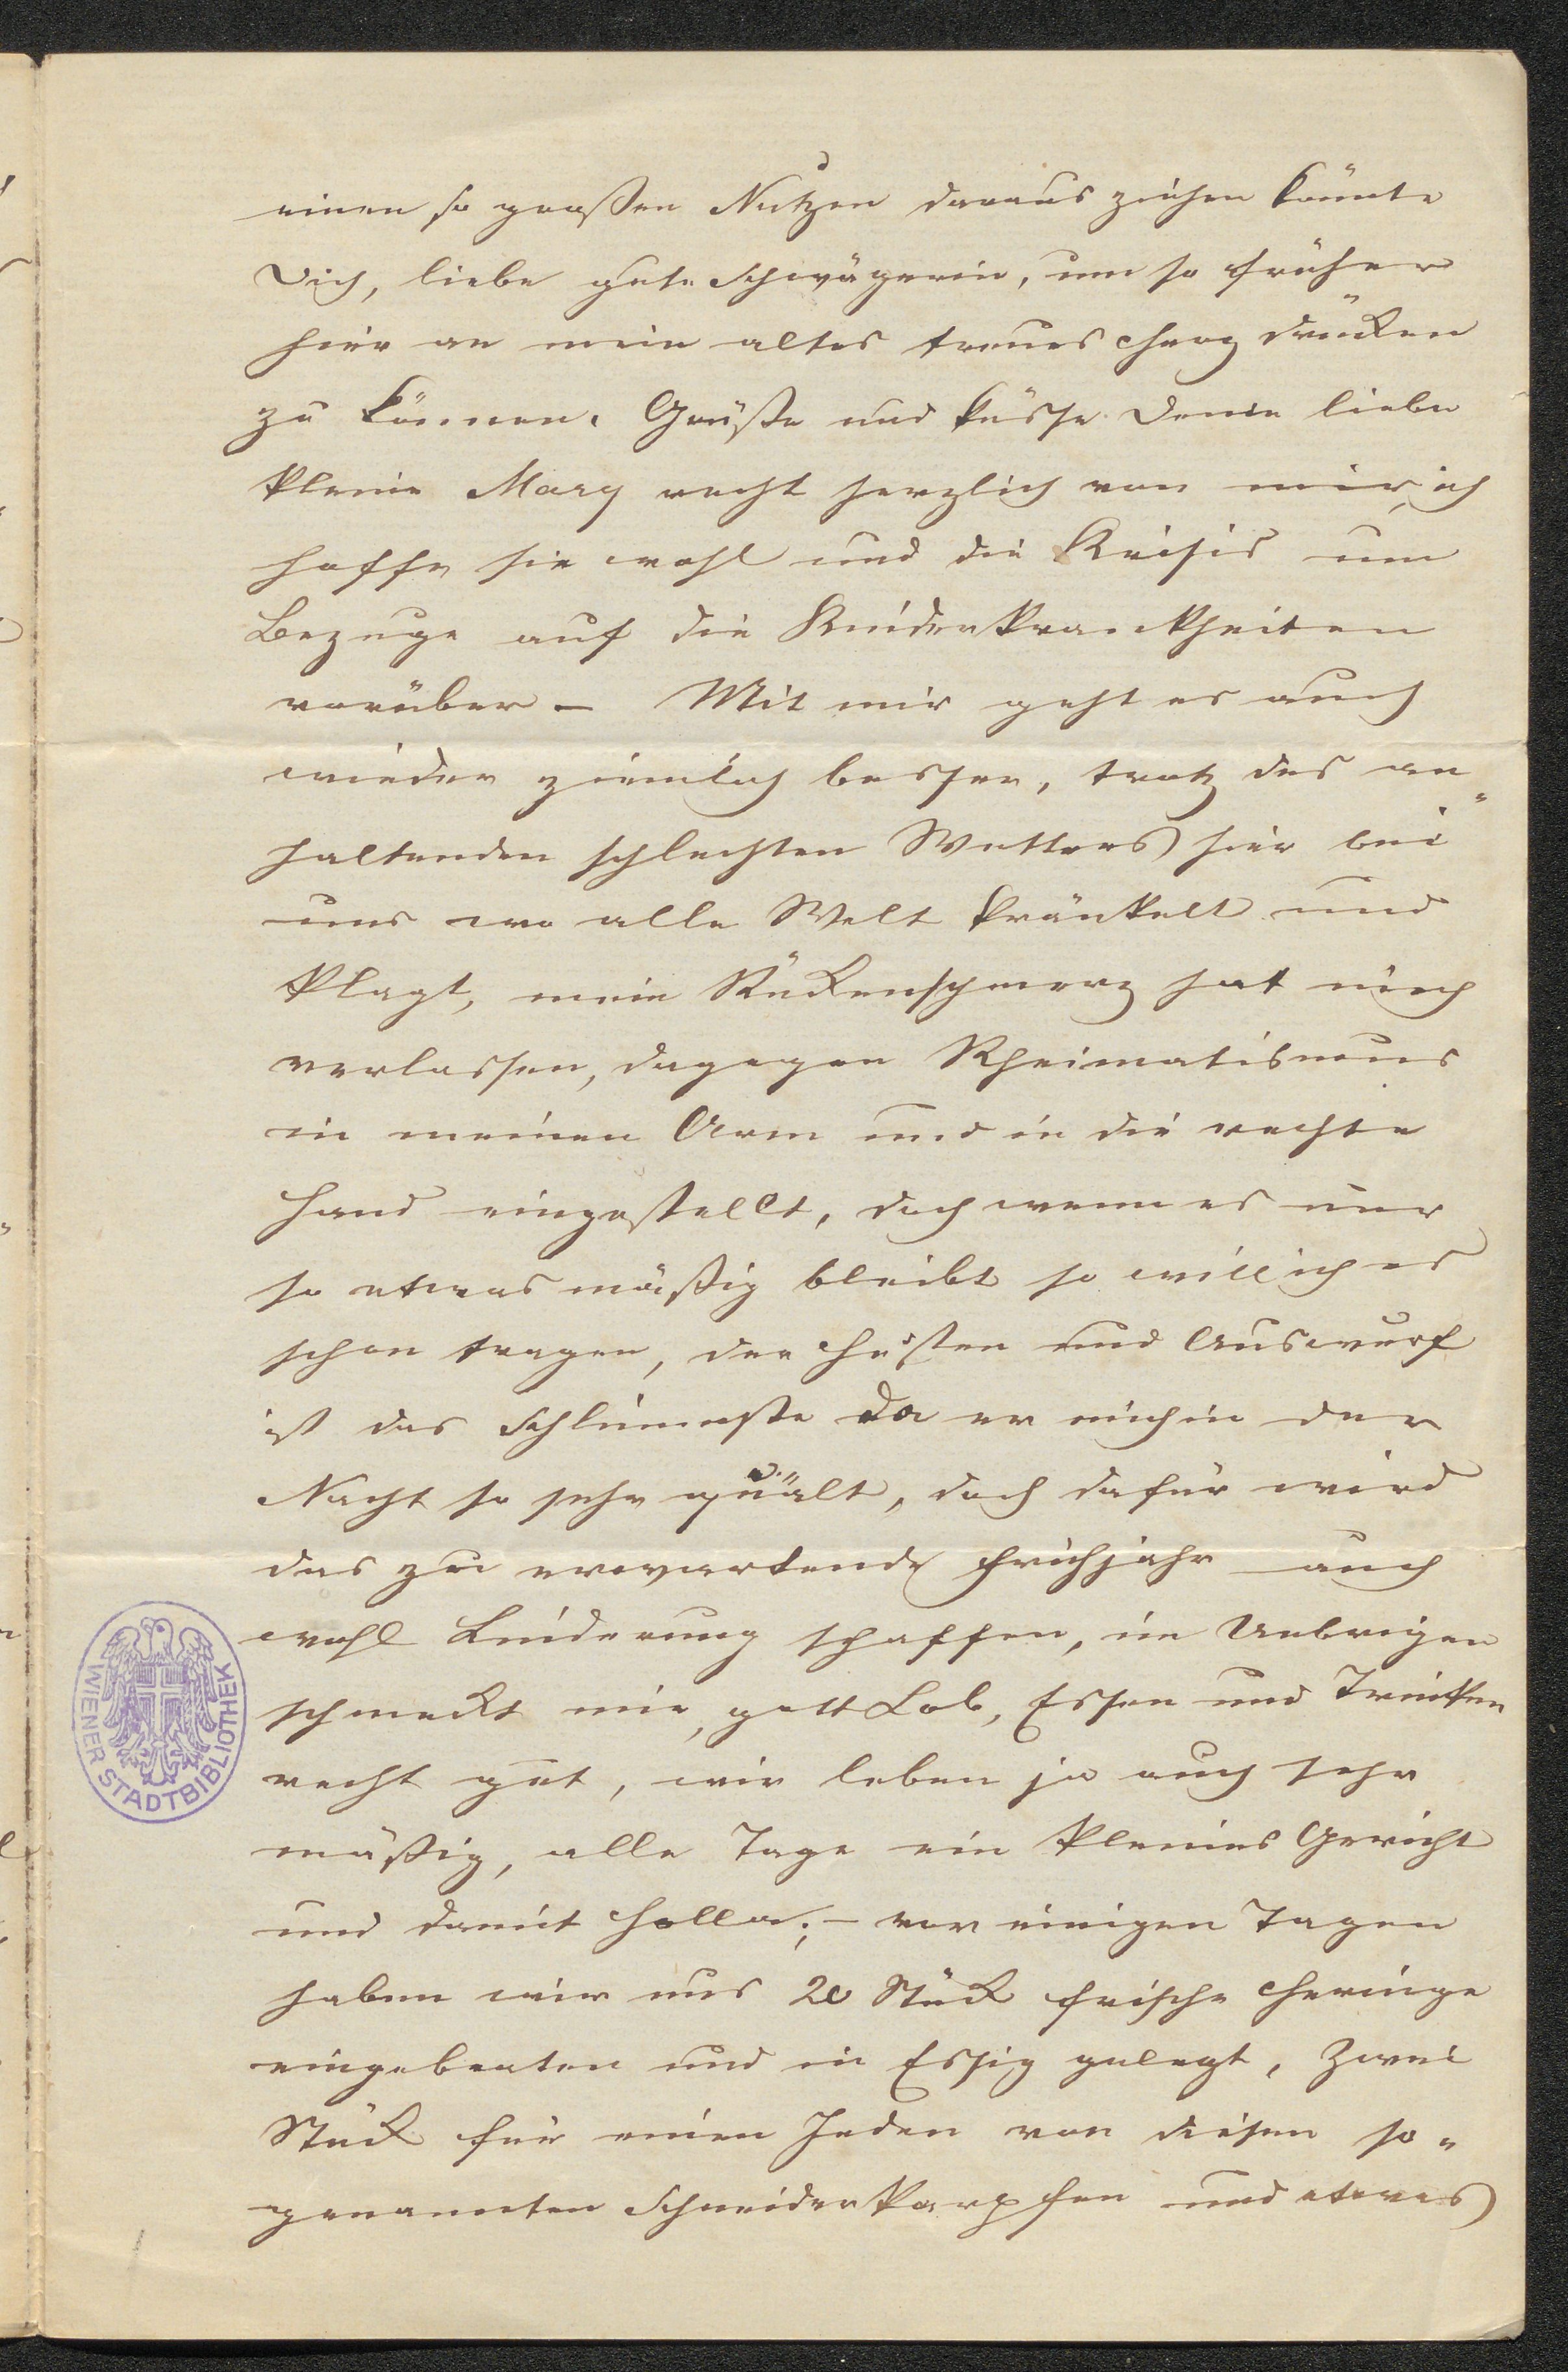 einen so großen Nutzen daraus ziehen könnte
Dich, liebe gute Schwägerin, um so früher
hier an mein altes treues Herz drücken
zu können. Grüße und küsse Deine liebe
kleine Mary recht herzlich von mir, ich
hoffe sie wohl und die Krisis um
Bezuge auf die Kinderkrankheiten
vorüber – Mit mir geht es auch
wieder ziemlich besser, trotz des an„
haltenden schlechten Wetters hier bei
uns wo alle Welt kränkelt und
klagt, mein Rückenschmerz hat mich
verlassen, dagegen Rheimatismus
in meinen Arm und in die rechte
Hand eingestellt, doch wenn es nur
so etwas mäßig bleibt so will ich es
schon tragen, der Husten und Auswurf
ist das Schlimmste da er mich in der
Nacht so sehr quält, doch dafür wird
das zu erwartende Frühjahr auch
wohl Linderung schaffen, im Uebrigen
schmeckt mir, gott Lob, Essen und Trinken
recht gut, wir leben ja auch sehr
mäßig, alle Tage ein kleines Gericht
und damit holla; – vor einigen Tagen
haben wir uns 20 Stück frische Heringe
eingebraten und in Essig gelegt, zwei
Stück für einen Jeden von diesen so„
genannten Schneiderkarpfen und etwas
WIENER STADTBIBLIOTHEK